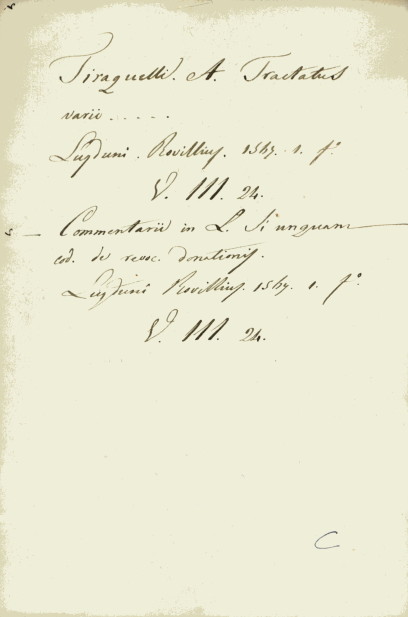 Tiraquelli. A. Tractatus
varii . . . . .
Lugduni. Rovillius. 1567. 1. fº
V. III. 24.
— Commentarii in L. Si unquam
cod. de revoc. donationis.
Lugduni Rovillius. 1567. 1. fº.
V. III. 24.
C